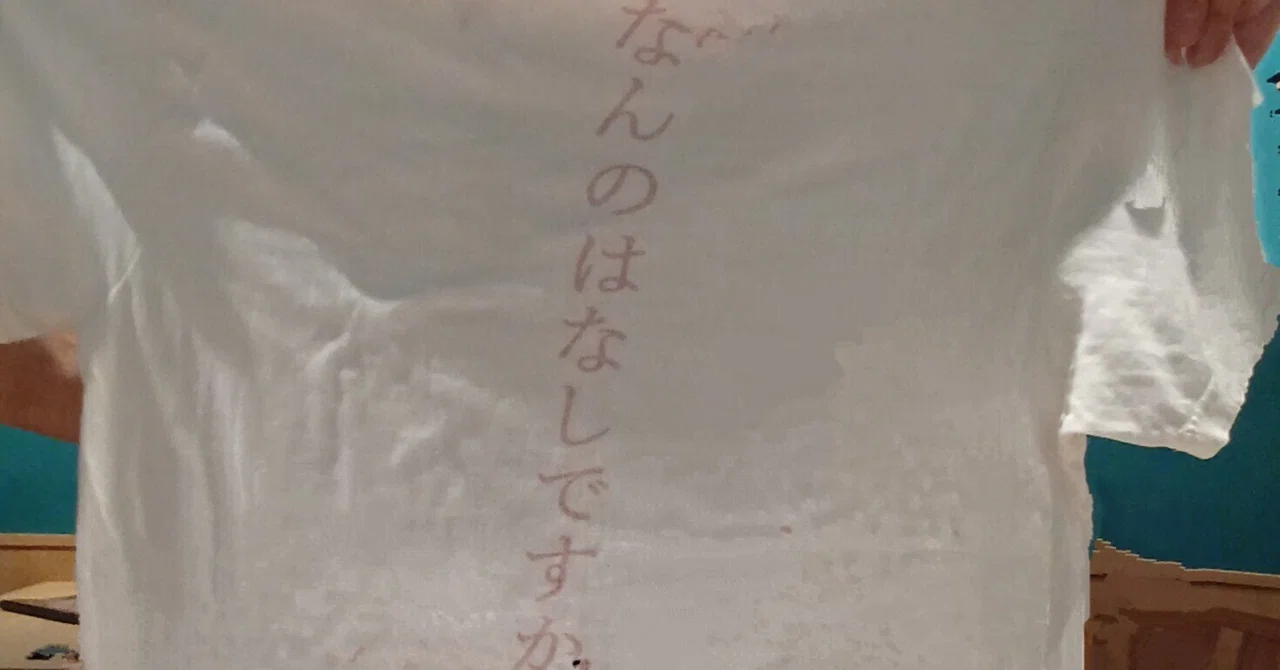 なんのはなしですか